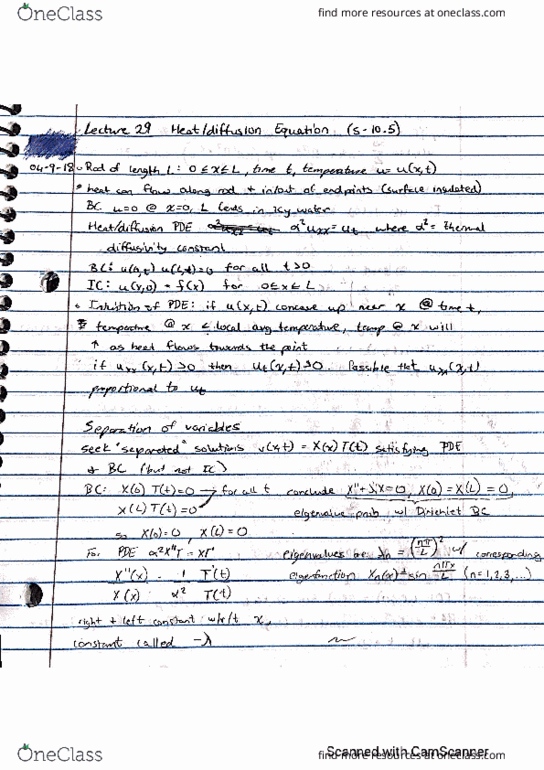 OneClass
find more resources at oneclass.com
Lecture 29 Heat/diffusion Equation (5-10.5)
04-9-18 Rod of length L: 0 ≤ x ≤ L, time t, temperature u = u(x,t)
heat can flow along rod + in/out at endpoints (surface insulated)
BC u=0 @ x=0, L (ends in icy water
Heat/diffusion PDE α²uxx = ut where α² = thermal
diffusivity constant
BC: u(0,t) u(L,t)=0 for all t>0
IC: u(x,0) = f(x) for 0≤x≤L
Intuition of PDE: if u(x,t) concave up near x @ time t,
temperature @ x < local avg temperature, temp @ x will
↑ as heat flows towards the point
if uxx(x,t) >0 then ut(x,t) >0. Possible that uxx(x,t)
proportional to ut
Separation of variables
Seek "separated" solutions v(x,t) = X(x) T(t) satisfying PDE
+ BC (but not IC)
BC: X(0) T(t)=0 → for all t conclude X''+λX=0, X(0)=X(L)=0,
X(L) T(t)=0 eigenvalue prob w/ Dirichlet BC
so X(0)=0, X(L)=0
For PDE α²X''T = XT' eigenvalues λn = (nπ/L)² w/ corresponding
X''(x)/X(x) = 1/α² T'(t)/T(t) eigenfunction Xn(x) = sin nπx/L (n=1,2,3,...)
right + left constant x,
constant called -λ
OneClass
Scanned with CamScanner
find more resources at oneclass.com